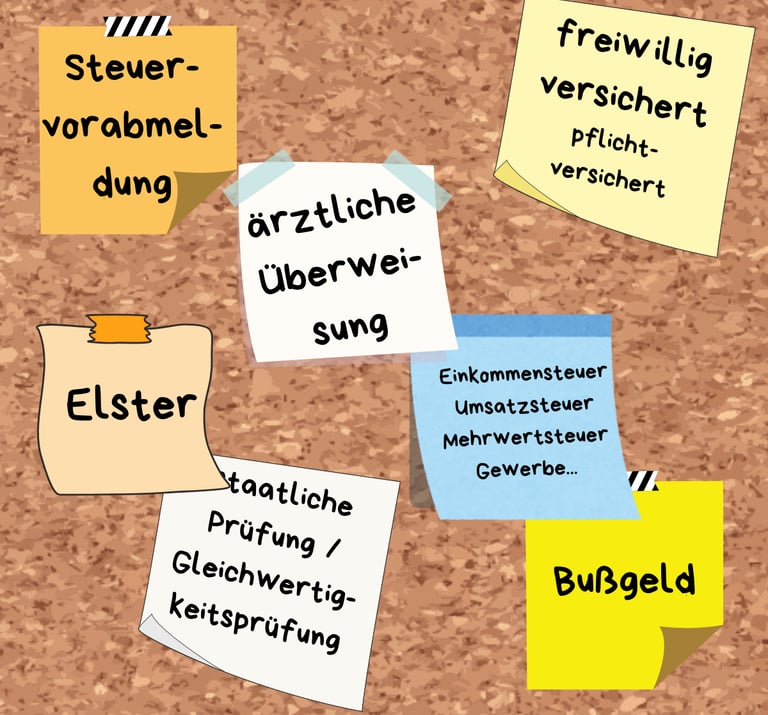 Steuer-
vorabmel-
dung
freiwillig
versichert
pflicht-
versichert
ärztliche
Überwei-
sung
Elster
Einkommensteuer
Umsatzsteuer
Mehrwertsteuer
Gewerbe...
taatliche
Prüfung /
Gleichwertig-
keitsprüfung
Bußgeld